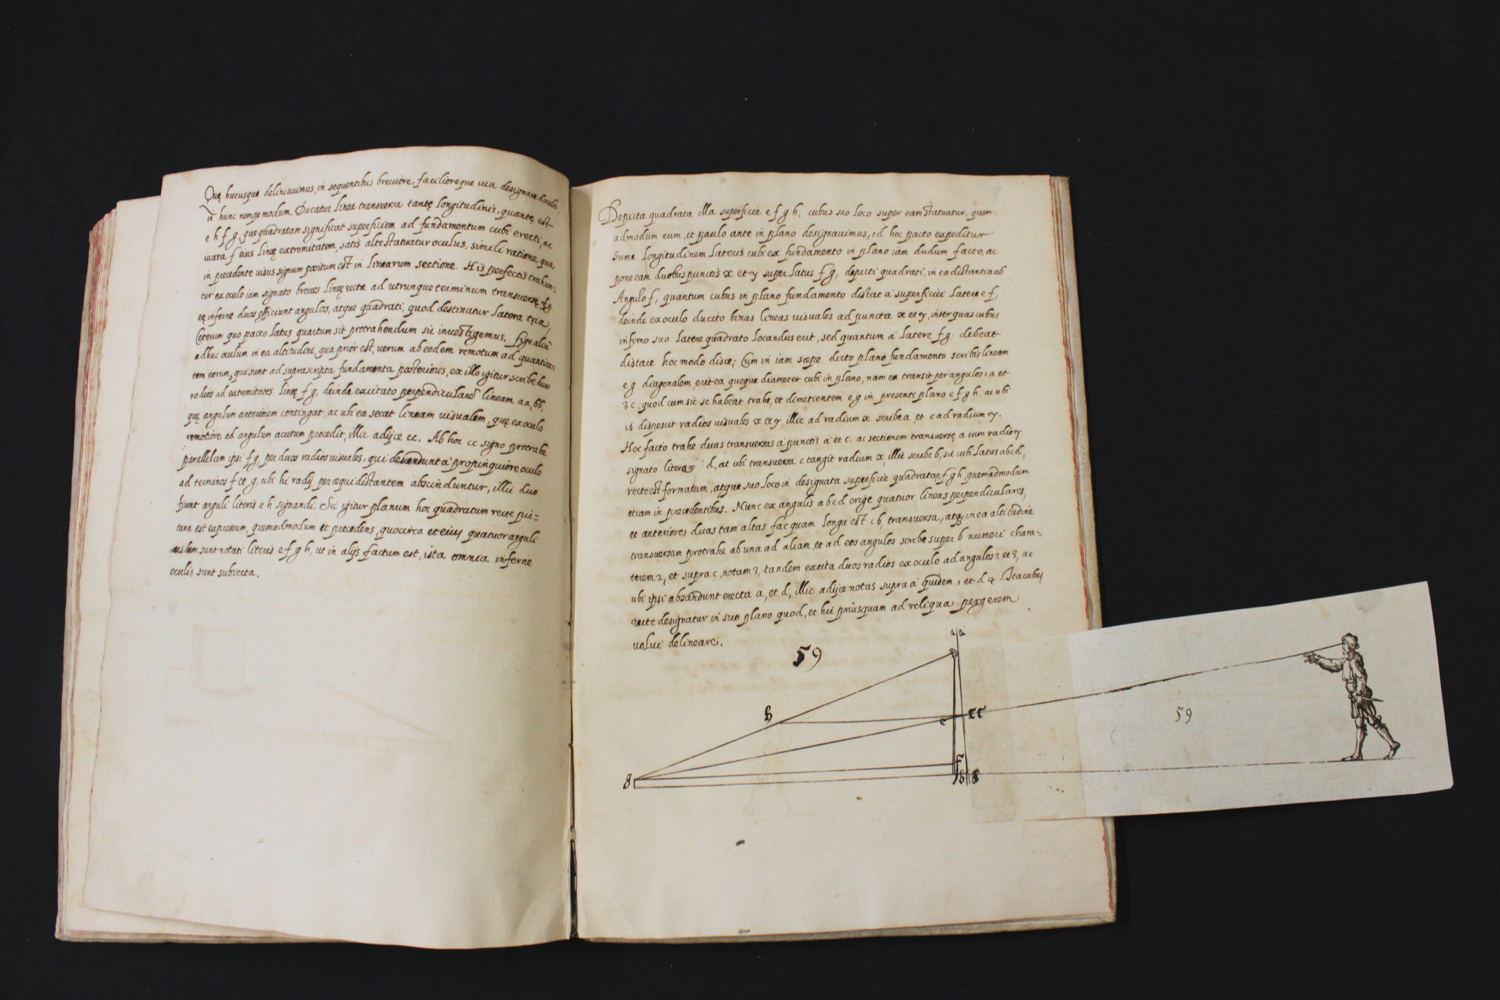 Quę hucusque deliniavimus, in sequentibus breviore, facilioreque via designari
in hunc nempe modum. Ducatur linea transversa tantę longitudinis, quantę est
e h f g, quę quadratam significat superficiem ad fundamentum cubi erecti, ac
iuxta f eius lineę extremitatem, satis alte statuatur oculus, simili ratione, qua
in precedente visus signum positum est in linearum sectione. His perfectis
tur ex oculo iam signato breves lineę rectę ad utrunque terminum transversę f g
eę inferne duos efficiunt angulos, atque quadrati, quod destinatur latera tria,
Ceterum quo pacto latus quartum sit protrahendum sic investigemus. Fige
adhuc oculum in ea altitudine, qua prior est, verum ab eodem remotum ad
tem eorum, qui sunt ad suprascripta fundamenta posteriores, ex illo igitur scribe duos
radios ad extremitates lineę f g, deinde excitato perpendicularem lineam aa, bb,
quę angulum anteriorem contingat, ac ubi ea secat lineam visualem, quę ex oculo
remotiore ad angulum acutum procedit, illic adijce cc. Ab hoc cc signo protrahe
parallelam ipsi f g, per duos radios visuales, qui descendunt a propinquiore oculo
ad terminos f et g, ubi hi radij per ęquidistantem abscinduntur, illic duo
fiunt anguli literis e h signandi. Sic igitur planum hoc quadratum recte pic=
tura est expressum, quemadmodum et precedens, quocirca et eius quatuor anguli
sunt notati literis e f g h, ut in alijs factum est, ista omnia inferne
oculis sunt subiecta.
Depicta quadrata illa superficie e f g h, cubus suo loco super eam statuatur, quem-
admodum eum, et paulo ante in plano designavimus, id hoc pacto expeditur
Sume longitudinem lateris cubi ex fundamento in plano iam dudum facto, ac
pone eam duobus punctis x et y super latus f g, depicti quadrati, in ea distantia ab
Angulo f, quantum cubus in plano fundamento distat a superficiei latere e f,
deinde ex oculo ducito binas lineas visuales ad puncta x et y, inter quas cubus
infimo suo latere quadrato locandus erit, sed quantum a latere f g. debeat
distare hoc modo disce; Cum in iam sæpe dicto plano fundamento scribis lineam
e g diagonalem, erit ea quoque diameter cubi in plano, nam ex transit per angulos a et
c, quod cum sic se habeat trahe, et dimetientem e g in presenti plano e f g h, ac ubi
is dispescit radios visuales x et y, illic ad radium x scribe a, et c ad radium y.
Hoc facto trahe duas transversas a punctis a et c. ac sectionem transversę a cum radio y
signato litera d, at ubi transversa c tangit radium x illic scribe b, sic cubi latus abcd,
recte est formatum, atque suo loco in designata superficie quadrata e f g h, quemadmodum
etiam in precedentibus. Nunc ex angulis a b c d erige quatuor lineas perpendiculares,
et anteriores duas tam altas fac quam longa est c b, transversa, atque in ea altitudine
transversam protrahe ab una ad aliam, et ad eos angulos scribe super b numeri chara-
terem 2, et supra c, notam 3, tandem excita duos radios ex oculo ad angulos 2 et 3, ac
ubi ipsi abscindunt erecta a, et d, illic adijce notas supra a quidem 1 et d 4. Ita cubus
recte designatur in suo plano quod, et hic priusquam ad reliqua pergerem
volui delineare.
59
a a
h
e
cc
g
f
b
g
59